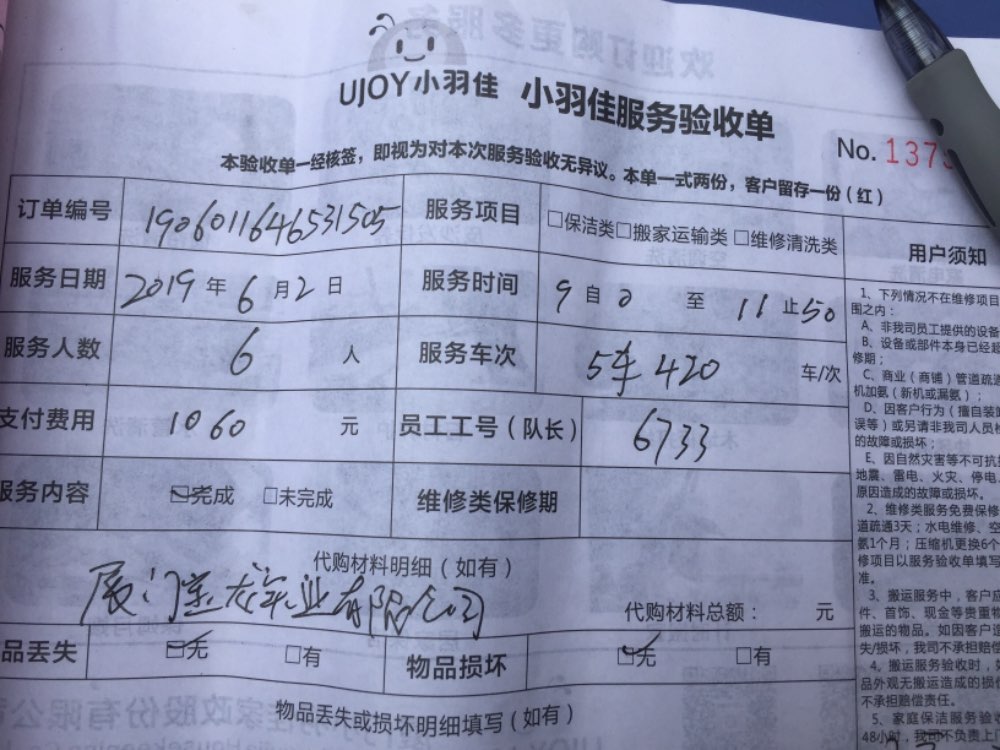 UJOY小羽佳 小羽佳服务验收单
No. 1373
本验收单一经核签，即视为对本次服务验收无异议。本单一式两份，客户留存一份（红）
订单编号 1906011646531505 服务项目 □保洁类□搬家运输类 □维修清洗类
服务日期 2019 年 6 月 2 日 服务时间 9 自 0 至 11 止 50
服务人数 6 人 服务车次 5车 420 车/次
支付费用 1060 元 员工工号（队长） 6733
服务内容 ☑完成 □未完成 维修类保修期
代购材料明细（如有）
龙实业有限公司
代购材料总额： 元
品丢失 ☑无 □有 物品损坏 ☑无 □有
物品丢失或损坏明细填写（如有）
用户须知
1、下列情况不在维修项目
围之内：
A、非我司员工提供的设备
B、设备或部件本身已经超
修期；
C、商业（商铺）管道疏
机加氨（新机或漏氨）；
D、因客户行为（擅自装
误等）或另请非我司人员
的故障或损坏；
E、因自然灾害等不可抗
地震、雷电、火灾、停电
原因造成的故障或损坏。
2、维修类服务免费保修
道疏通3天；水电维修、空
氨1个月；压缩机更换6个
修项目以服务验收单填写
准。
3、搬运服务中，客户应
件、首饰、现金等贵重
搬运的物品。如因客户
失/损坏，我司不承担赔偿
4、搬运服务验收时，
品外观无搬运造成的损
不承担赔偿责任。
5、家庭保洁服务验
48小时，我司不负责上